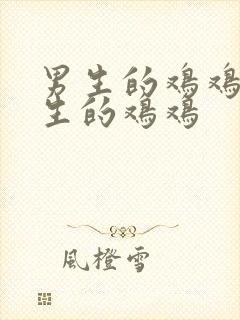 男生的鸡鸡
生的鸡鸡
風橙雪